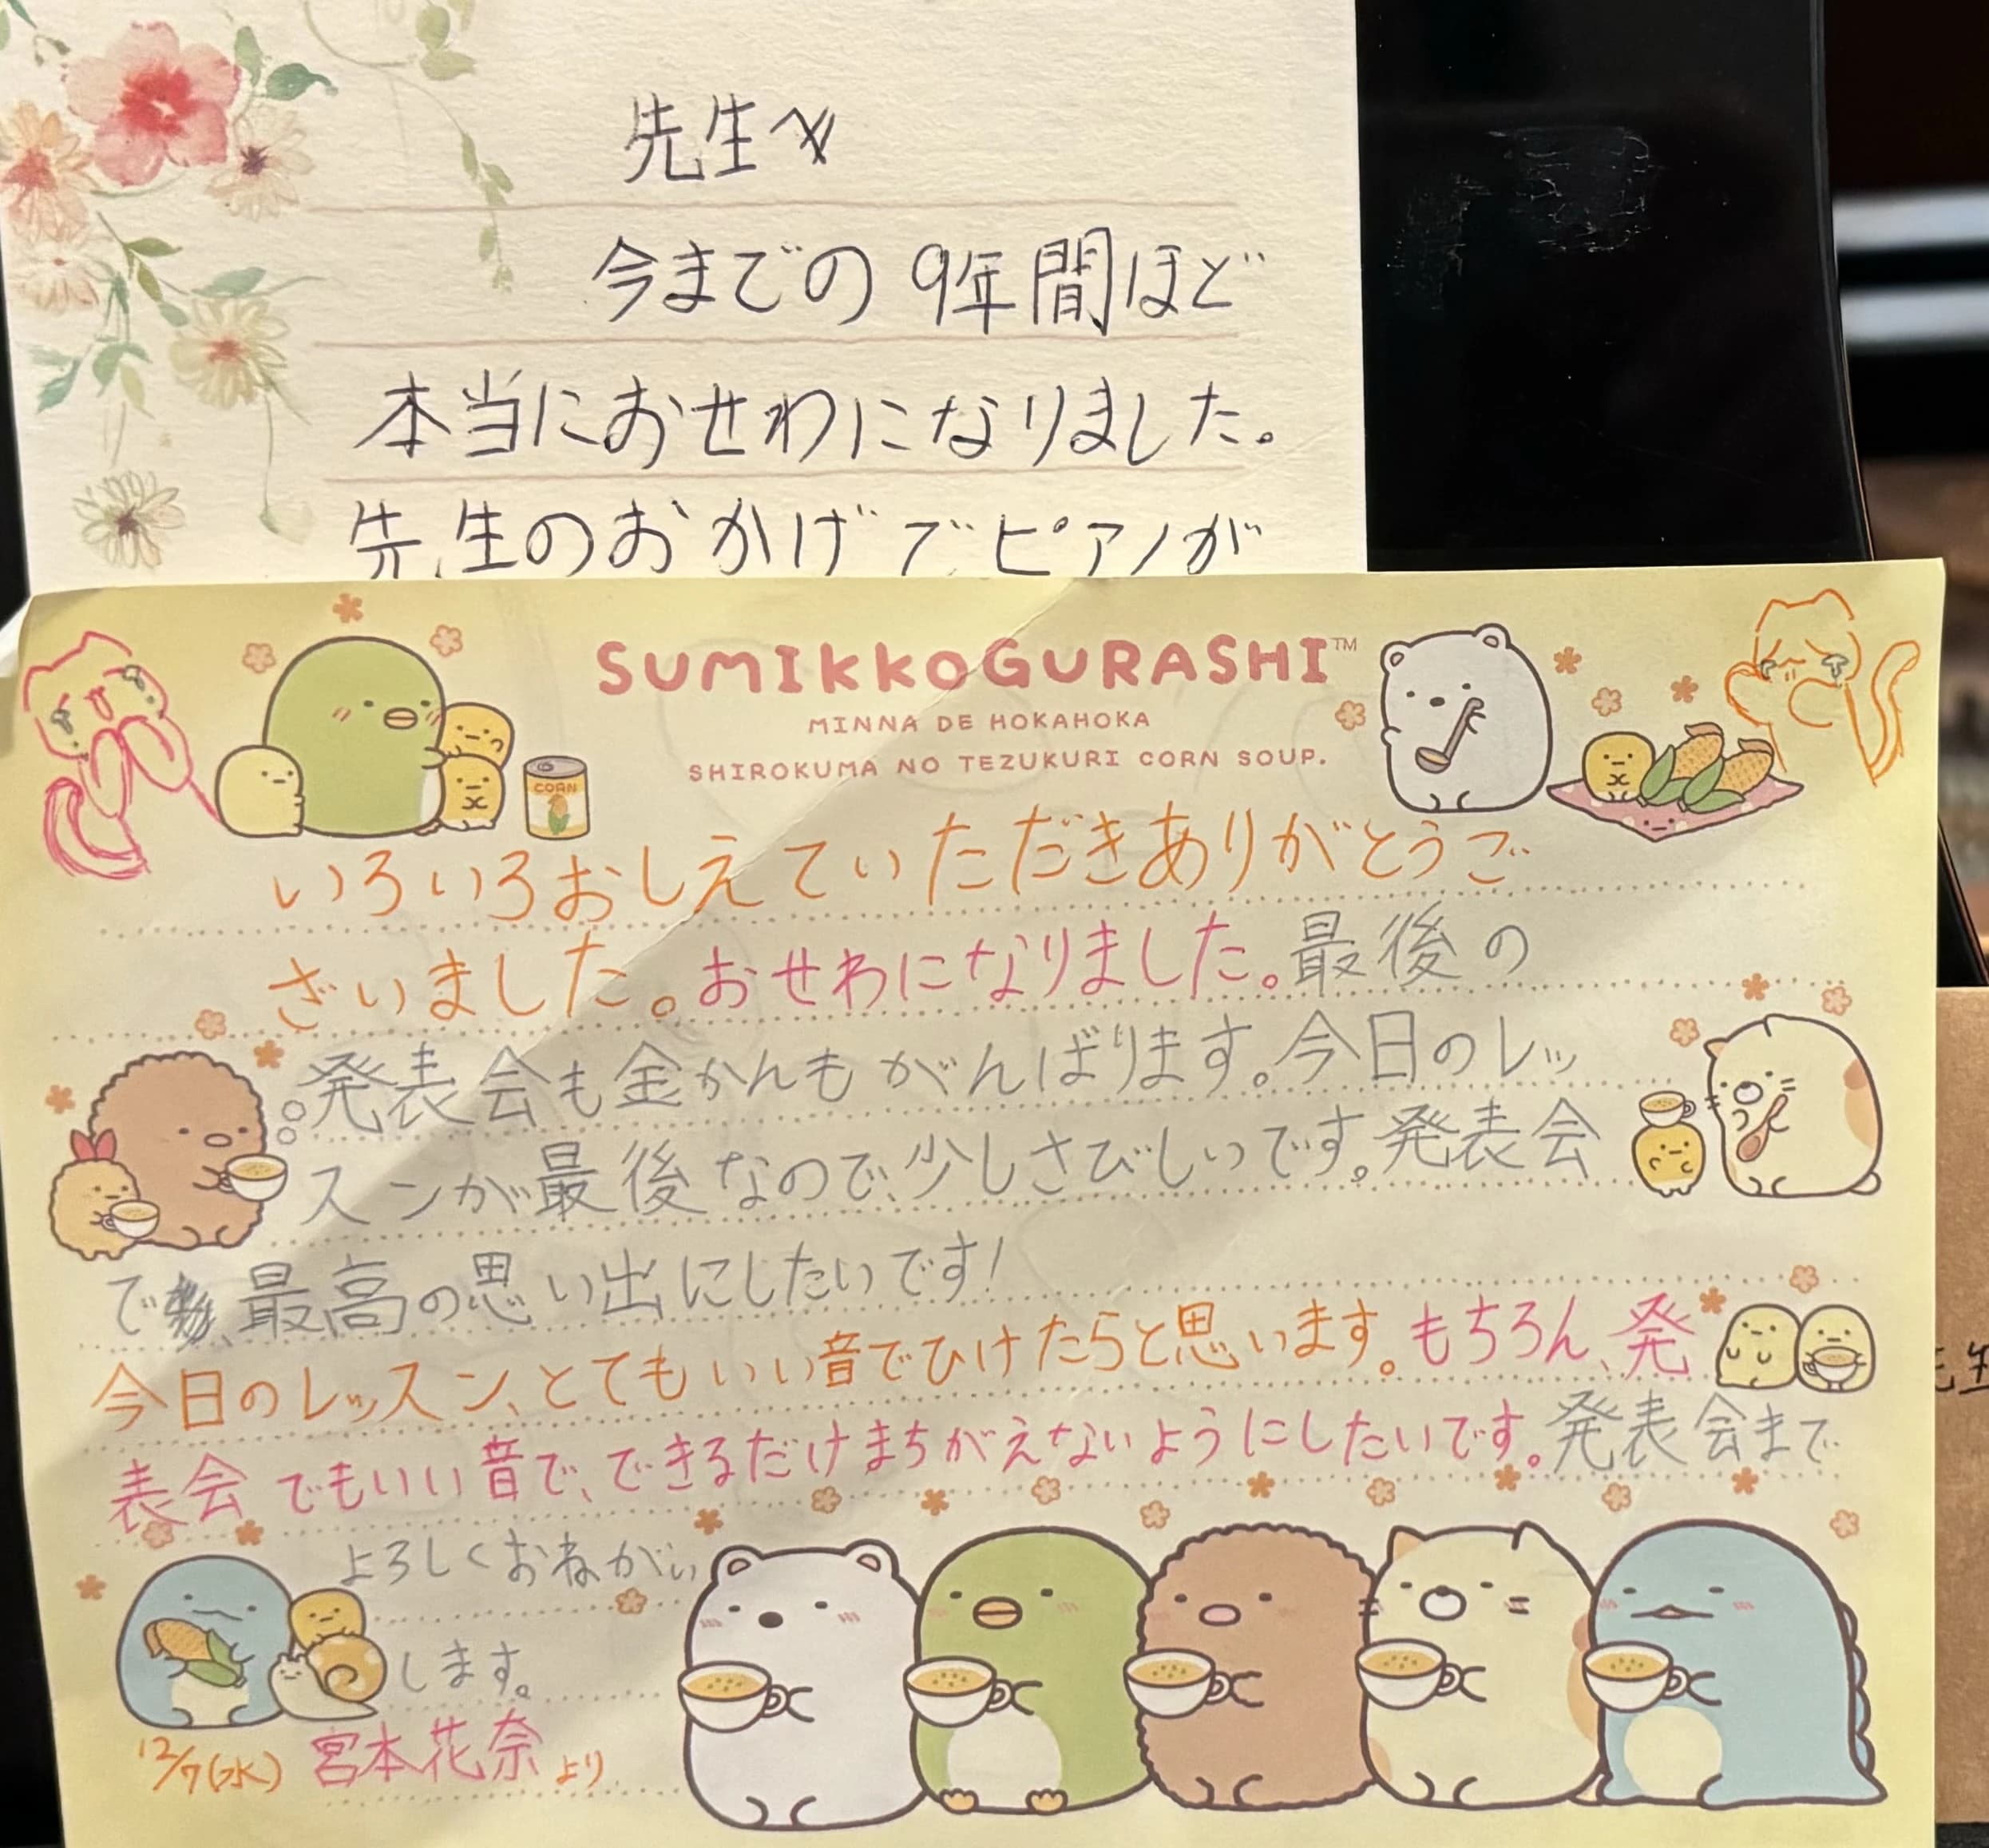 先生へ
今までの9年間ほど
本当におせわになりました。
先生のおかげでピアノが
SUMIKKOGURASHI™
MINNA DE HOKAHOKA
SHIROKUMA NO TEZUKURI CORN SOUP.
CORN
いろいろおしえていただきありがとうご
ざいました。おせわになりました。最後の
発表会も金かんもがんばります。今日のレッ
スンが最後なので、少しさびしいです。発表会
で、最高の思い出にしたいです!
今日のレッスン、とてもいい音でひけたらと思います。もちろん、発
表会でもいい音で、できるだけまちがえないようにしたいです。発表会まで
よろしくおねがい
します。
12/7(水) 宮本花奈より